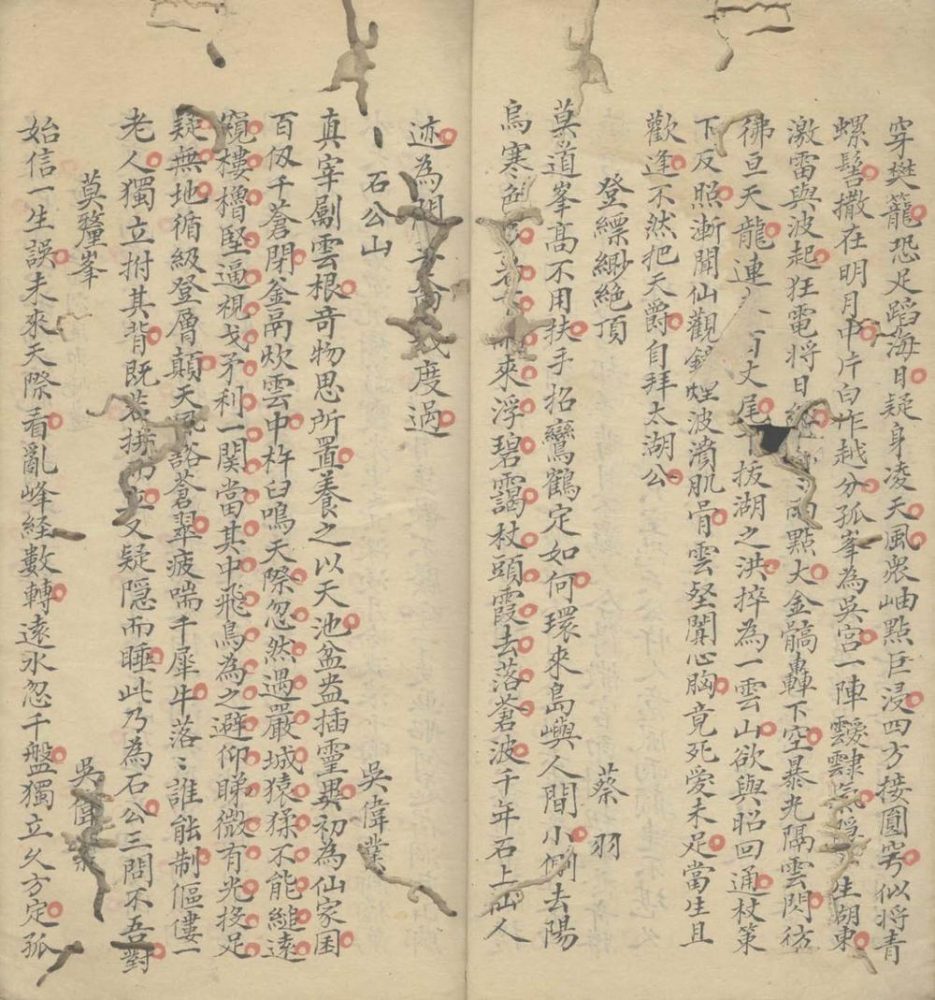 穿樊籠恐足蹈海日疑身凌天風衆岫點巨浸四方接圓穹似將青
螺髻撒在明月中片白作越分孤峯為吳宫一陣靉靆氣生湖東
激雷與波起狂電將日雨點大金髇轟下空暴光隔雲閃彷
彿亘天龍連百丈尾下拔湖之洪捽為一雲山欲與昭回通杖策
下反照漸聞仙觀鐘煙波濆肌骨雲壑闐心胸竟死愛未足當生且
歡逢不然把天爵自拜太湖公
登縹緲絕頂 蔡羽
莫道峯高不用扶手招鸞鶴定如何環來島嶼人間小倒去陽
烏寒色來浮碧靄杖頭霞去落蒼波千年石上仙人
迹為問度過
石公山 吳偉業
真宰劚雲根奇物思所置養之以天池盆盎插靈異初為仙家囷
百仭千蒼閉釜鬲炊雲中杵臼鳴天際忽然遇嚴城猿猱不能縋遠
窺樓櫓堅逼視戈矛利一関當其中飛鳥為之避仰睇微有光投足
疑無地循級登層顛天風豁蒼翠疲喘千犀牛落〻誰能制傴僂一
老人獨立拊其背既若拱而立又疑隱而睡此乃為石公三問不吾對
莫釐峯 吳偉業
始信一生誤未來天際看亂峰経數轉遠水忽千盤獨立久方定孤